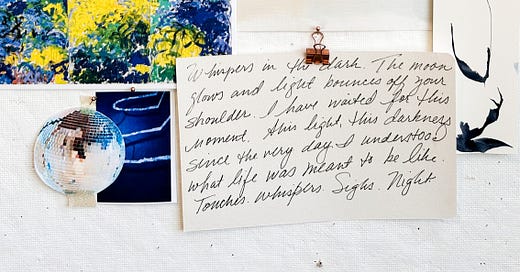 Whispers in the dark. The moon
glows and light bounces off your
shoulder. I have waited for this
moment. This light, this darkness
since the very day I understood
what life was meant to be like.
Touches. Whispers. Sighs. Night